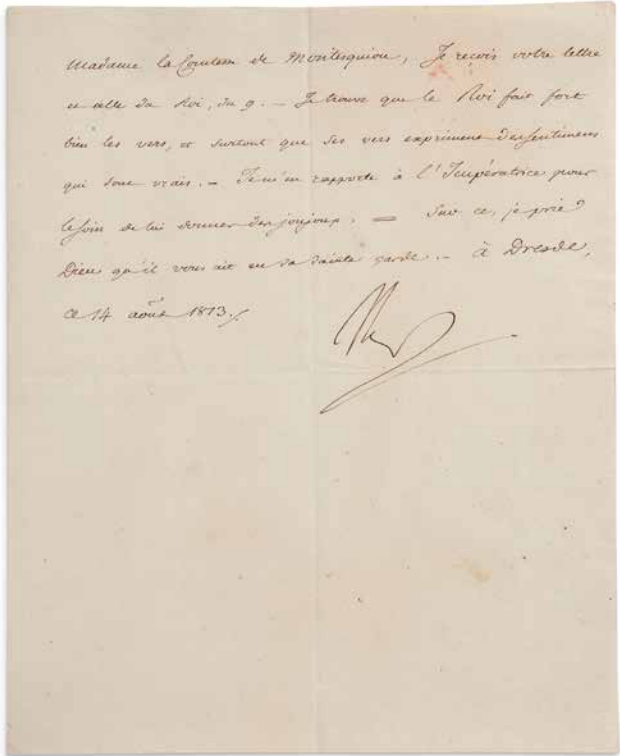 Madame la Comtesse de Montesquiou, Je reçois votre lettre
et celle du Roi, du 9. — Je trouve que le Roi fait fort
bien les vers, et surtout que ses vers expriment des sentimens
qui sont vrais. — Je m'en rapporte à l'Impératrice pour
le soin de lui donner des joujoux. — Sur ce, je prie
Dieu qu'il vous ait en sa sainte garde. — à Dresde,
ce 14 août 1813./.